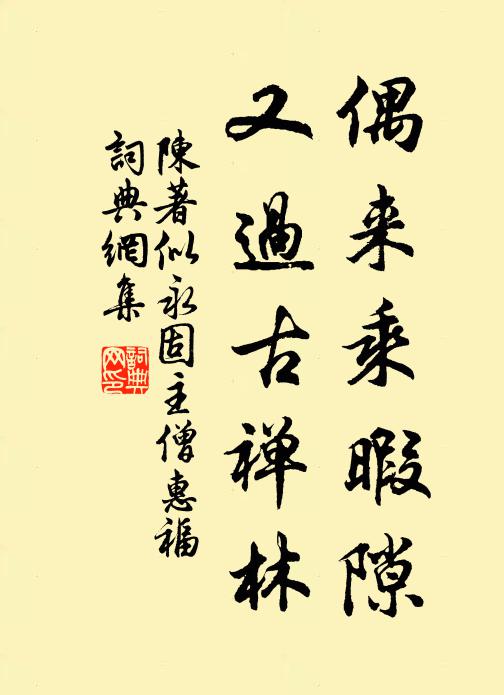 偶来乘暇隙
又過古禅林
陳著似永固主僧惠福
詞典網集
詞典网印